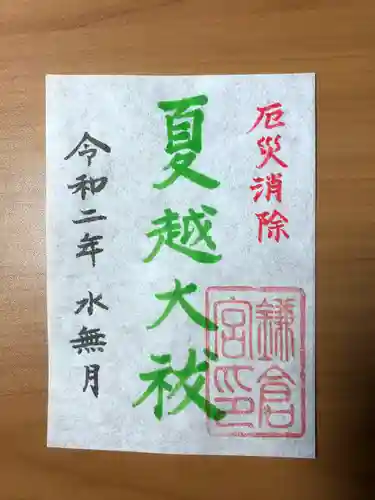 厄災消除
夏越大祓
令和二年 水無月
鎌倉
宮印